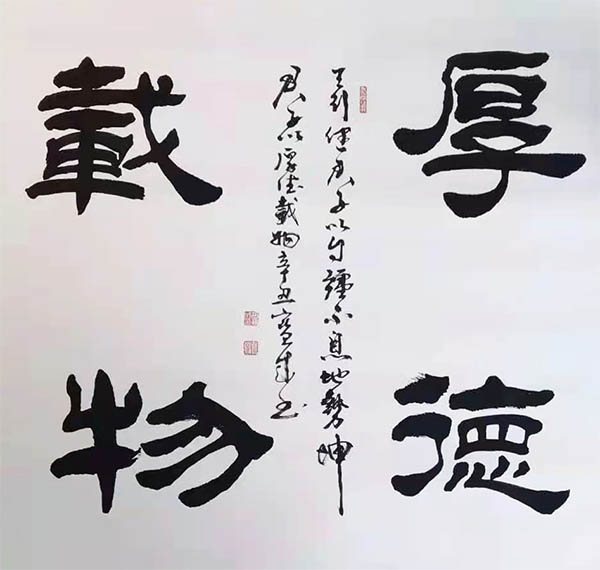 厚德
載物
天行健君子以自疆不息地勢坤
君子以厚德載物辛丑寶成書